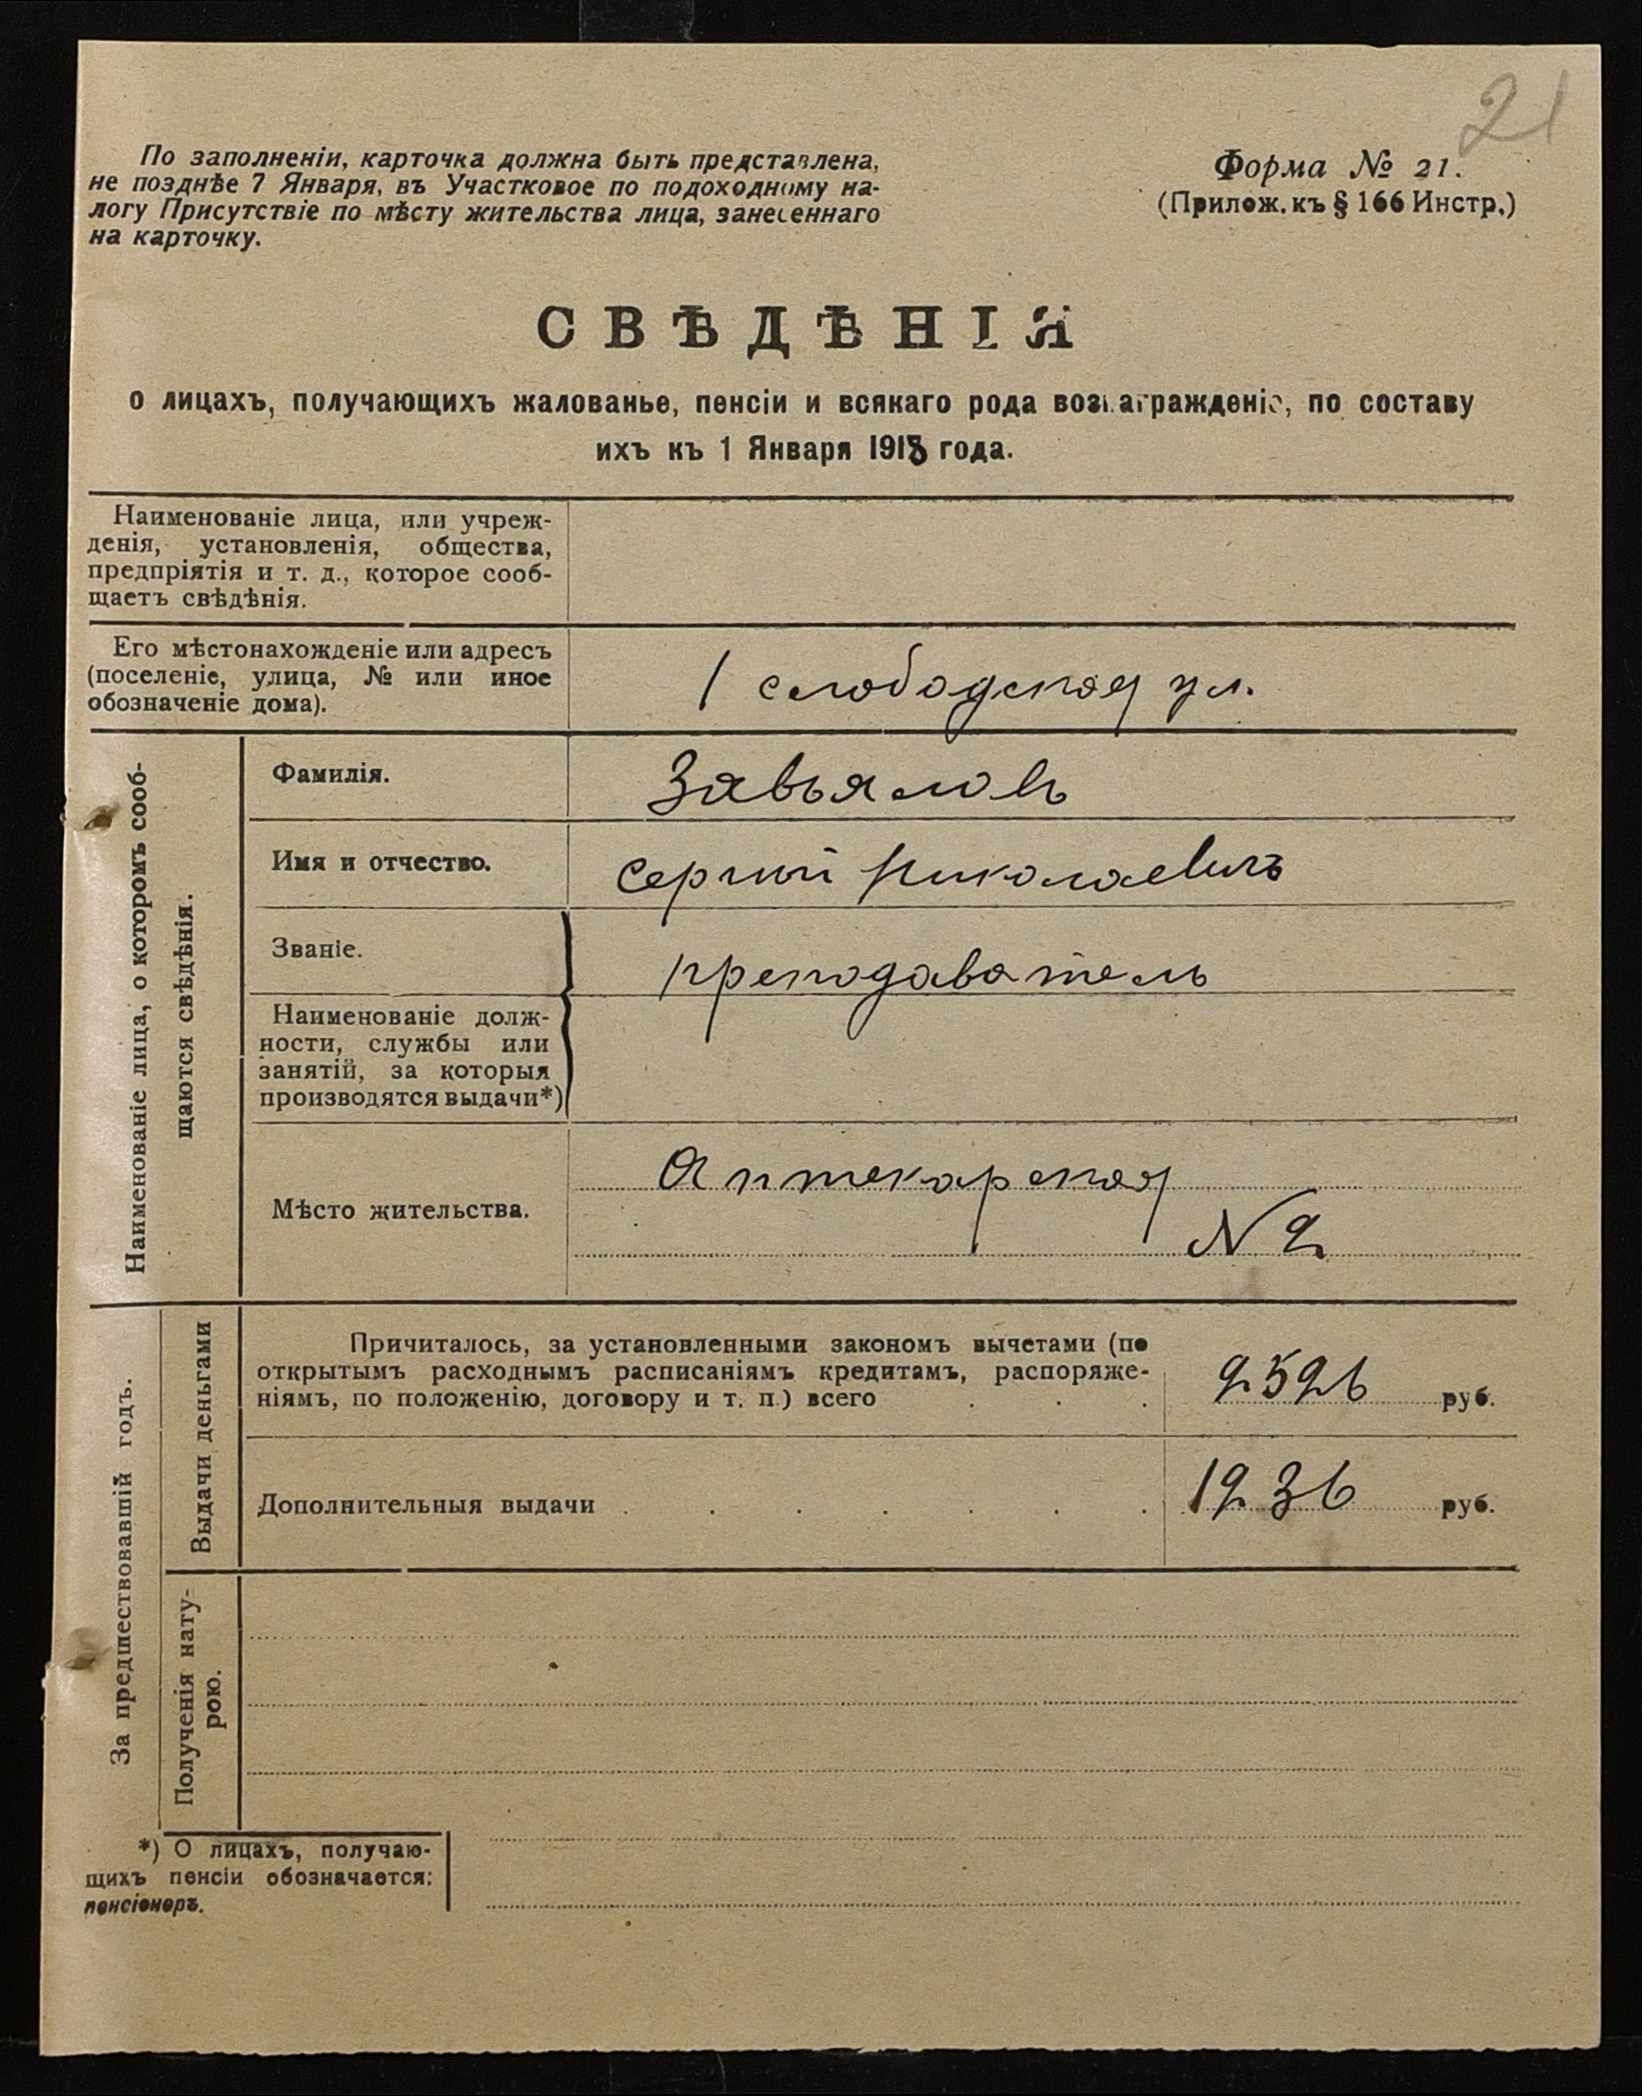 21
По заполненіи, карточка должна быть представлена,
не позднѣе 7 Января, въ Участковое по подоходному на-
логу Присутствіе по мѣсту жительства лица, занесеннаго
на карточку.
Форма № 21.
(Прилож. къ § 166 Инстр.)
СВѢДѢНІЯ
о лицахъ, получающихъ жалованье, пенсіи и всякаго рода вознагражденіе, по составу
ихъ къ 1 Января 1918 года.
Наименованіе лица, или учреж-
денія, установленія, общества,
предпріятія и т. д., которое сооб-
щаетъ свѣдѣнія.
Его мѣстонахожденіе или адресъ
(поселеніе, улица, № или иное
обозначеніе дома).
1 слободская ул.
Наименованіе лица, о которомъ сооб-
щаются свѣдѣнія.
Фамилія.
Завьяловъ
Имя и отчество.
Сергий Николаевичъ
Званіе.
преподаватель
Наименованіе долж-
ности, службы или
занятій, за которыя
производятся выдачи*)
Мѣсто жительства.
Аптекарская
N 2
За предшествовавшій годъ.
Выдачи деньгами
Причиталось, за установленными закономъ вычетами (по
открытымъ расходнымъ расписаніямъ кредитамъ, распоряже-
ніямъ, по положенію, договору и т. п.) всего . . .
2526 руб.
Дополнительныя выдачи . . . . . . .
1236 руб.
Полученія нату-
рою.
*) О лицахъ, получаю-
щихъ пенсіи обозначается:
пенсіонеръ.